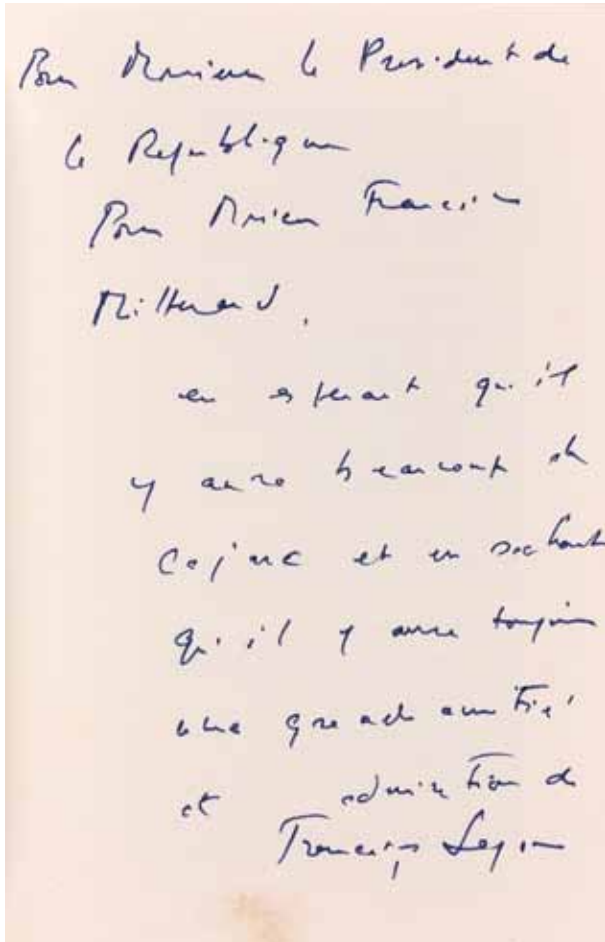 Pour Monsieur le Président de
la République
Pour Monsieur François
Mitterrand,
en espérant qu'il
y aura beaucoup de
Cajarc et en sachant
qu'il y aura toujours
une grande amitié
et admiration de
Françoise Sagan